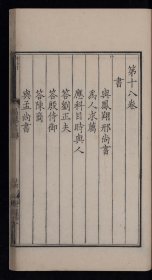 第十八卷
書
與鳳翔邢尚書
為人求薦
應科目時與人
答劉正夫
答殷侍御
答陳商
與孟尚書